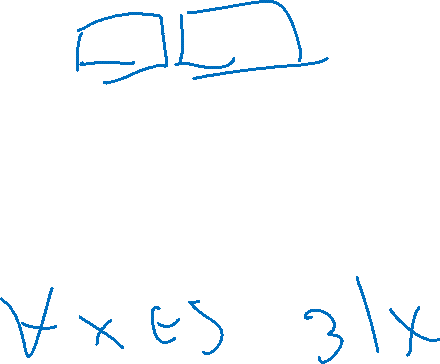 ∀ x ∈ S 3 | x